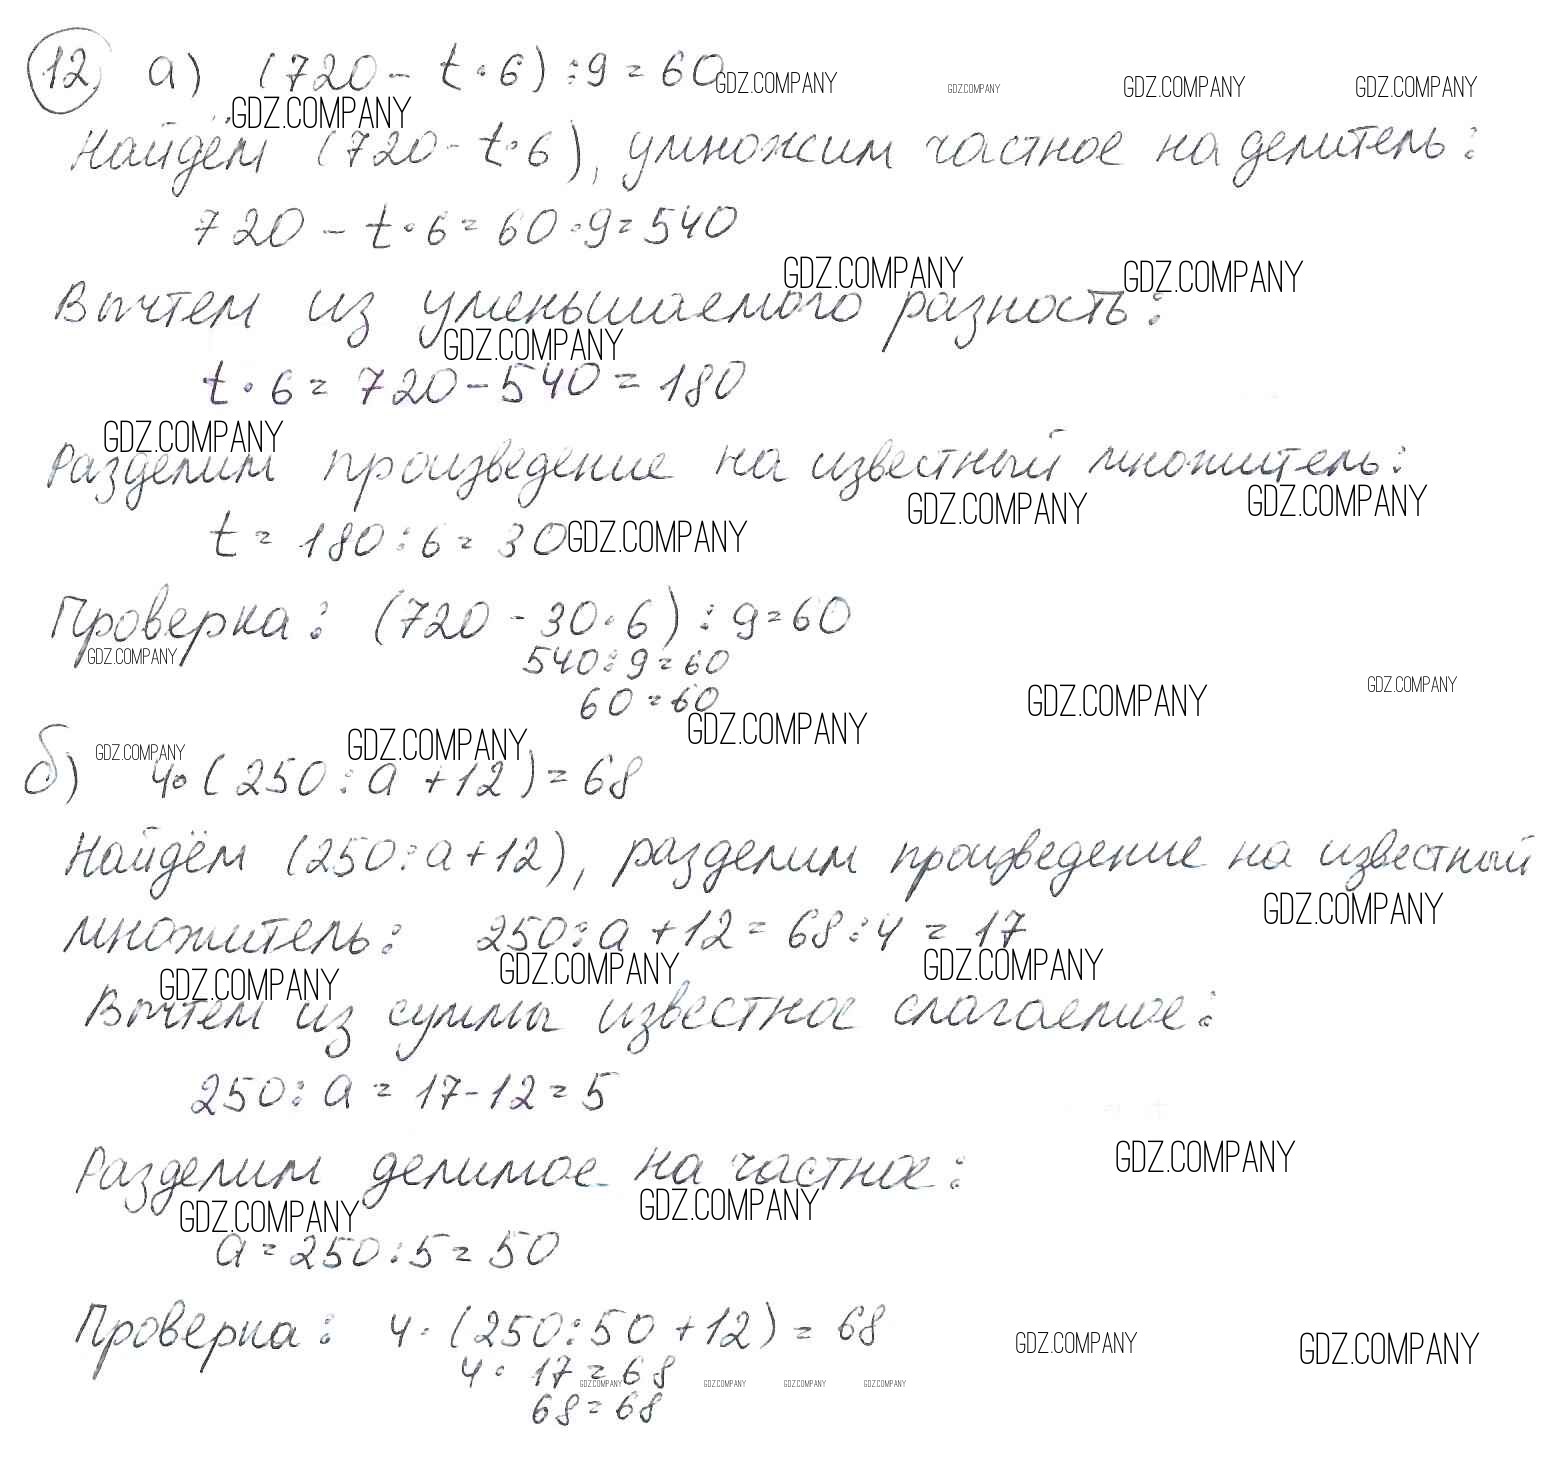 12 а) (720 - t · 6) : 9 = 60 GDZ.COMPANY GDZ.COMPANY GDZ.COMPANY GDZ.COMPANY
GDZ.COMPANY
Найдём (720 - t · 6), умножим частное на делитель:
720 - t · 6 = 60 · 9 = 540
GDZ.COMPANY GDZ.COMPANY
Вычтем из уменьшаемого разность:
GDZ.COMPANY
t · 6 = 720 - 540 = 180
GDZ.COMPANY
Разделим произведение на известный множитель:
GDZ.COMPANY GDZ.COMPANY
t = 180 : 6 = 30 GDZ.COMPANY
Проверка: (720 - 30 · 6) : 9 = 60
GDZ.COMPANY 540 : 9 = 60
GDZ.COMPANY
60 = 60 GDZ.COMPANY
GDZ.COMPANY
GDZ.COMPANY GDZ.COMPANY
б) 4 · (250 : a + 12) = 68
Найдём (250 : a + 12), разделим произведение на известный
GDZ.COMPANY
множитель: 250 : a + 12 = 68 : 4 = 17
GDZ.COMPANY GDZ.COMPANY GDZ.COMPANY
Вычтем из суммы известное слагаемое:
250 : a = 17 - 12 = 5
GDZ.COMPANY
Разделим делимое на частное:
GDZ.COMPANY GDZ.COMPANY
a = 250 : 5 = 50
Проверка: 4 · (250 : 50 + 12) = 68
GDZ.COMPANY GDZ.COMPANY
4 · 17 = 68
GDZ.COMPANY GDZ.COMPANY GDZ.COMPANY GDZ.COMPANY
68 = 68